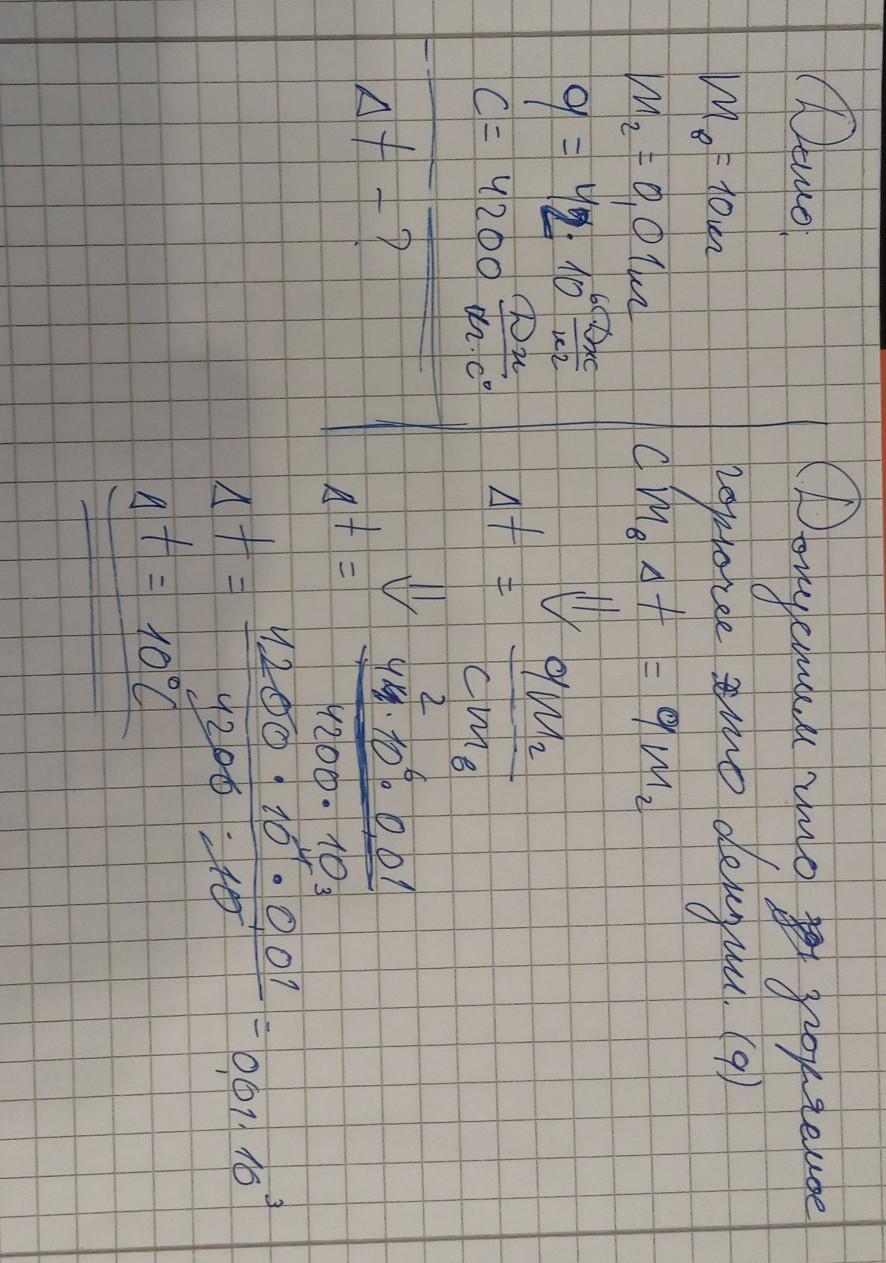 Дано:
m_в = 10 кг
m_г = 0,01 кг
q = 42 · 10⁶ Дж/кг
C = 4200 Дж/кг·C°
Δt - ?
Допустим что згоряемое
горючее это бензин. (q)
C m_в Δt = q m_г
⇓
Δt = q m_г / C m_в
⇓
Δt = 42 · 10⁶ · 0,01 / 4200 · 10
Δt = 4200 · 10⁴ · 0,01 / 4200 · 10 = 0,01 · 10³
Δt = 10°C